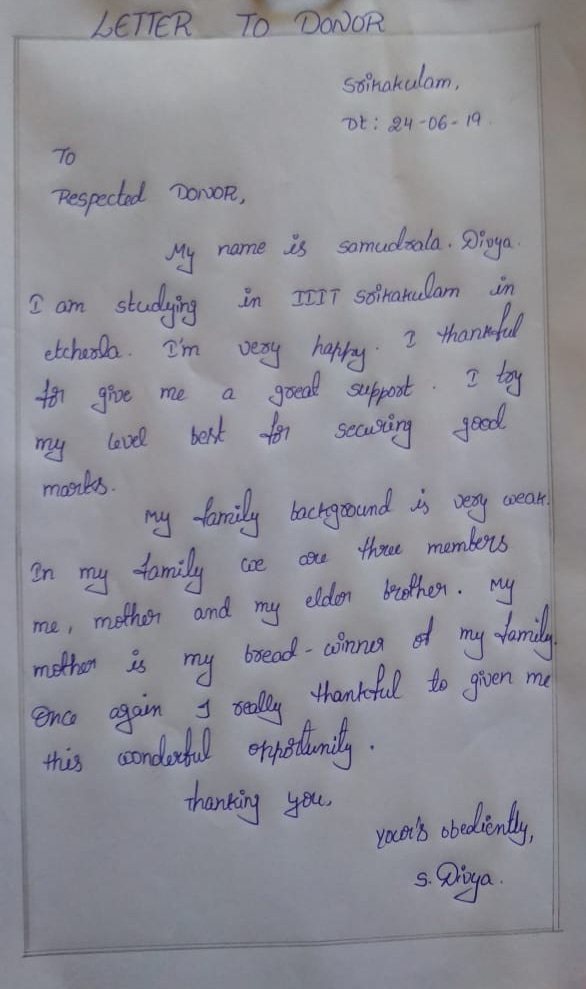 LETTER TO DONOR
Srikakulam,
Dt: 24-06-19.
To
Respected DONOR,
My name is samudrala. Divya.
I am studying in IIIT Srikakulam in
etcherla. I'm very happy. I thankful
for give me a great support. I try
my level best for securing good
marks.
My family background is very weak.
In my family we are three members
me, mother and my elder brother. My
mother is my bread-winner of my family.
Once again I really thankful to given me
this wonderful opportunity.
Thanking you,
your's obediently,
S. Divya.